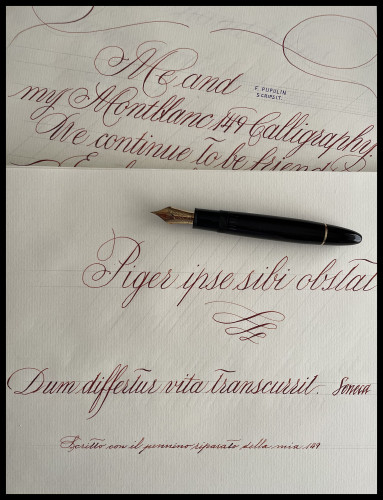 Me and
F. PUPOLIN
SCRIPSIT.
my Montblanc 149 Calligraphy
We continue to be friend
Piger ipse sibi obstat
Dum differtur vita transcurrit. Seneca
Scritto con il pennino riparato della mia 149